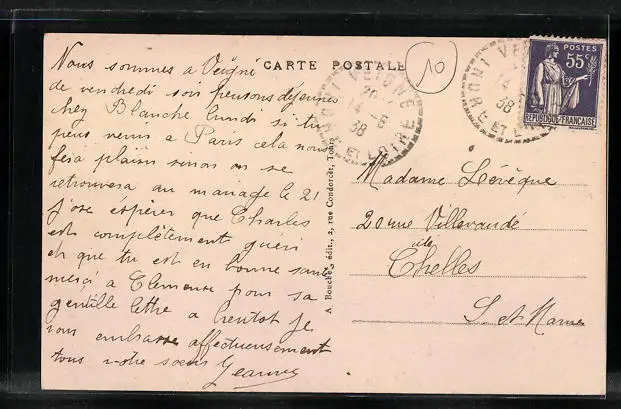 CARTE POSTALE
10
Nous sommes a Veigné
de vendredi soir pensons déjeuner
chez Blanche lundi si tu
peux venir a Paris cela nous
fera plaisir sinon on se
retrouvera au mariage le 21
j'ose espérer que Charles
est complètement guéri
et que tu est en bonne santé
merci a Clemence pour sa
gentille lettre a bientot je
vous embrasse affectueusement
tous votre soeur Jeanne
A. Bouché, édit., 2, rue Condorcet, Tours
POSTES
55c
REPUBLIQUE FRANÇAISE
14 -6
38
ET LOIRE
14
38
ET L
Madame Levêque
20 rue Villevaudé
Chelles
S et Marne